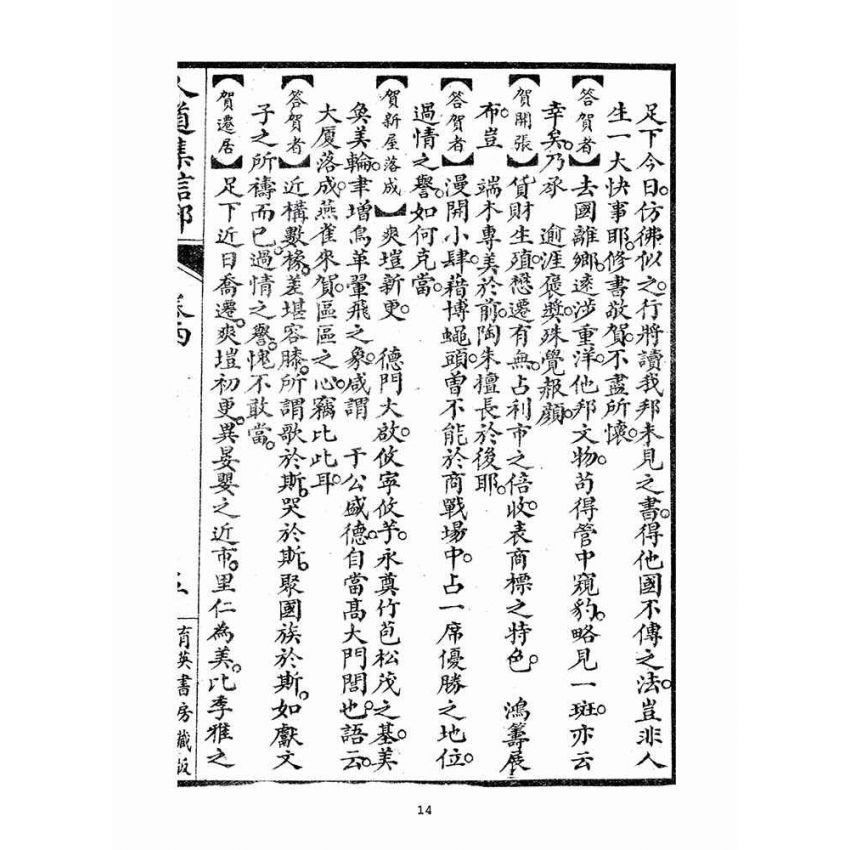 足下今日。仿彿似之。行將讀我邦未見之書。得他國不傳之法。豈非人
生一大快事耶。修書敬賀。不盡所懷。
【答賀者】去國離鄉。遠涉重洋。他邦文物。苟得管中窺豹。略見一斑。亦云
幸矣。乃承 逾涯褒獎。殊覺赧顏。
【賀開張】貨財生殖。懋遷有無。占利市之倍收。表商標之特色。 鴻籌展
布。豈 端木專美於前。陶朱擅長於後耶。
【答賀者】漫開小肆。藉博蠅頭。曾不能於商戰場中。占一席優勝之地位。
過情之譽。如何克當。
【賀新屋落成】爽塏新更。 德門大啟。攸寧攸芋。永奠竹苞松茂之基。美
奐美輪。聿增鳥革翬飛之象。咸謂 于公盛德。自當高大門閭也。語云。
大厦落成。燕雀來賀。區區之心。竊比此耳。
【答賀者】近構數椽。差堪容膝。所謂歌於斯。哭於斯。聚國族於斯。如獻文
子之所禱而已。過情之譽。愧不敢當。
【賀遷居】足下近日喬遷。爽塏初更。異晏嬰之近市。里仁為美。比季雅之
道集信部
育英書房藏版
14